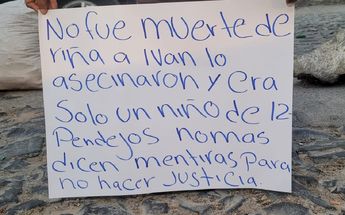 No fue muerte de
riña a IVAN lo
asecinaron y era
Solo un niño de 12
Pendejos nomas
dicen mentiras para
no hacer Justicia.